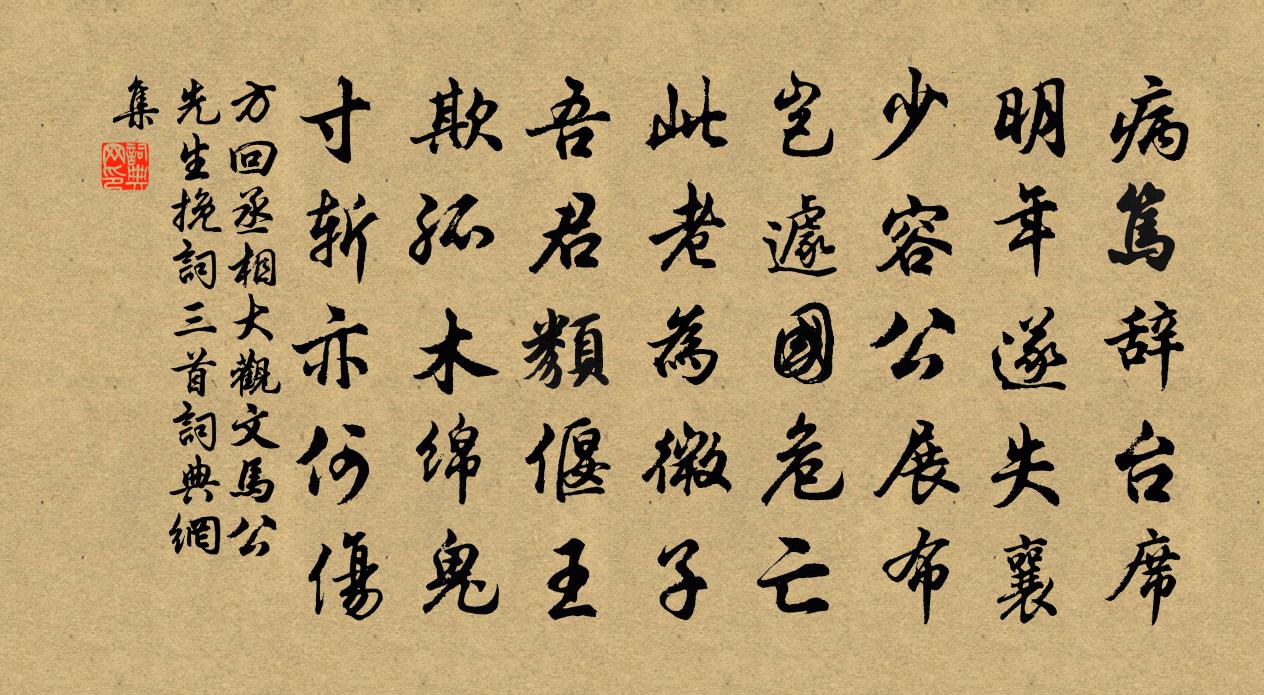 病篤辞台席
明年遂失襄
少容公展布
岂遽國危亡
此老為微子
吾君類偃王
欺孤木綿鬼
寸斬亦何傷
方回丞相大觀文馬公
先生挽詞三首詞典網
集
詞典
网印